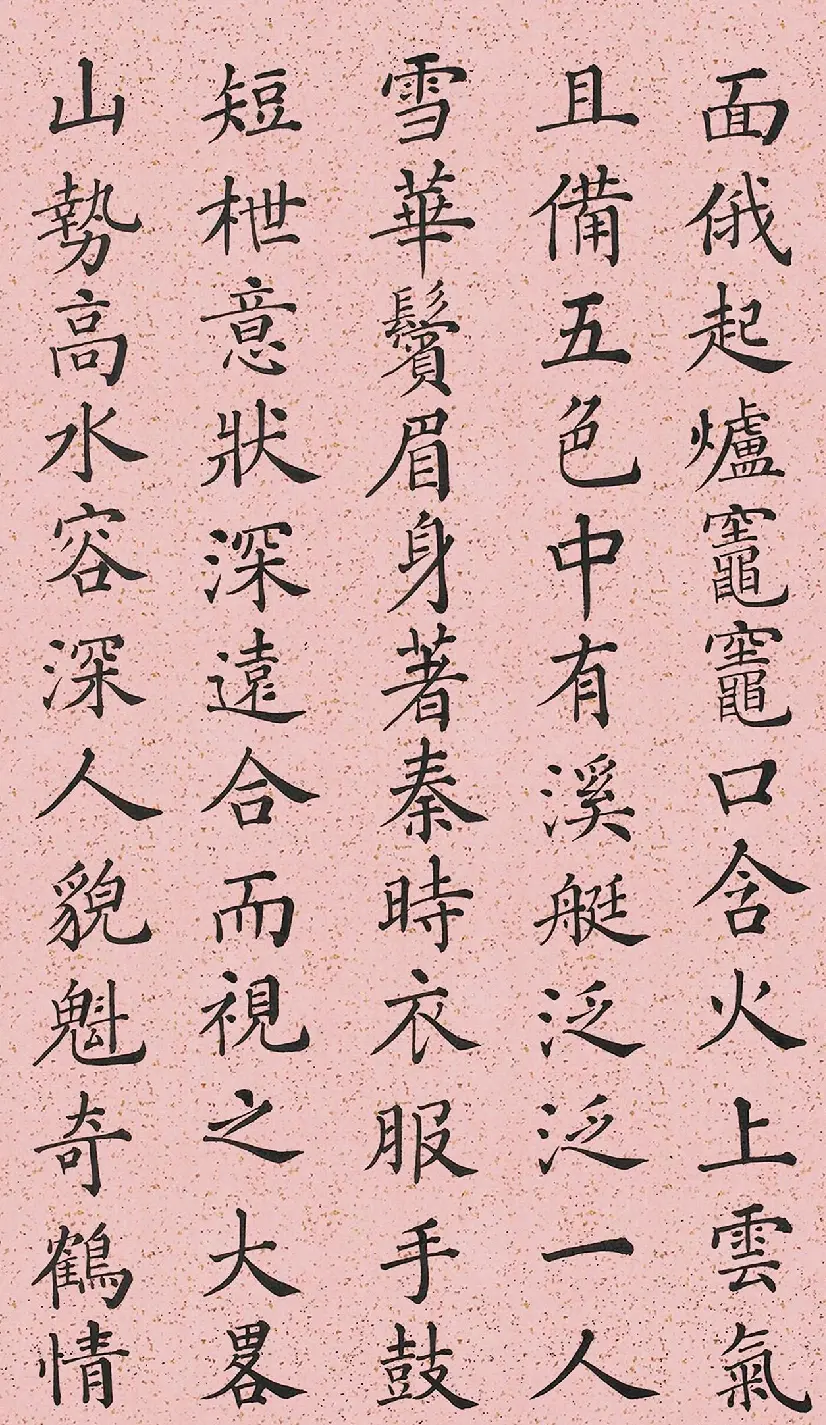 面俄起爐竈竈口含火上雲氣
且備五色中有溪艇泛泛一人
雪華鬢眉身著秦時衣服手鼓
短枻意狀深遠合而視之大畧
山勢高水容深人貌魁奇鶴情